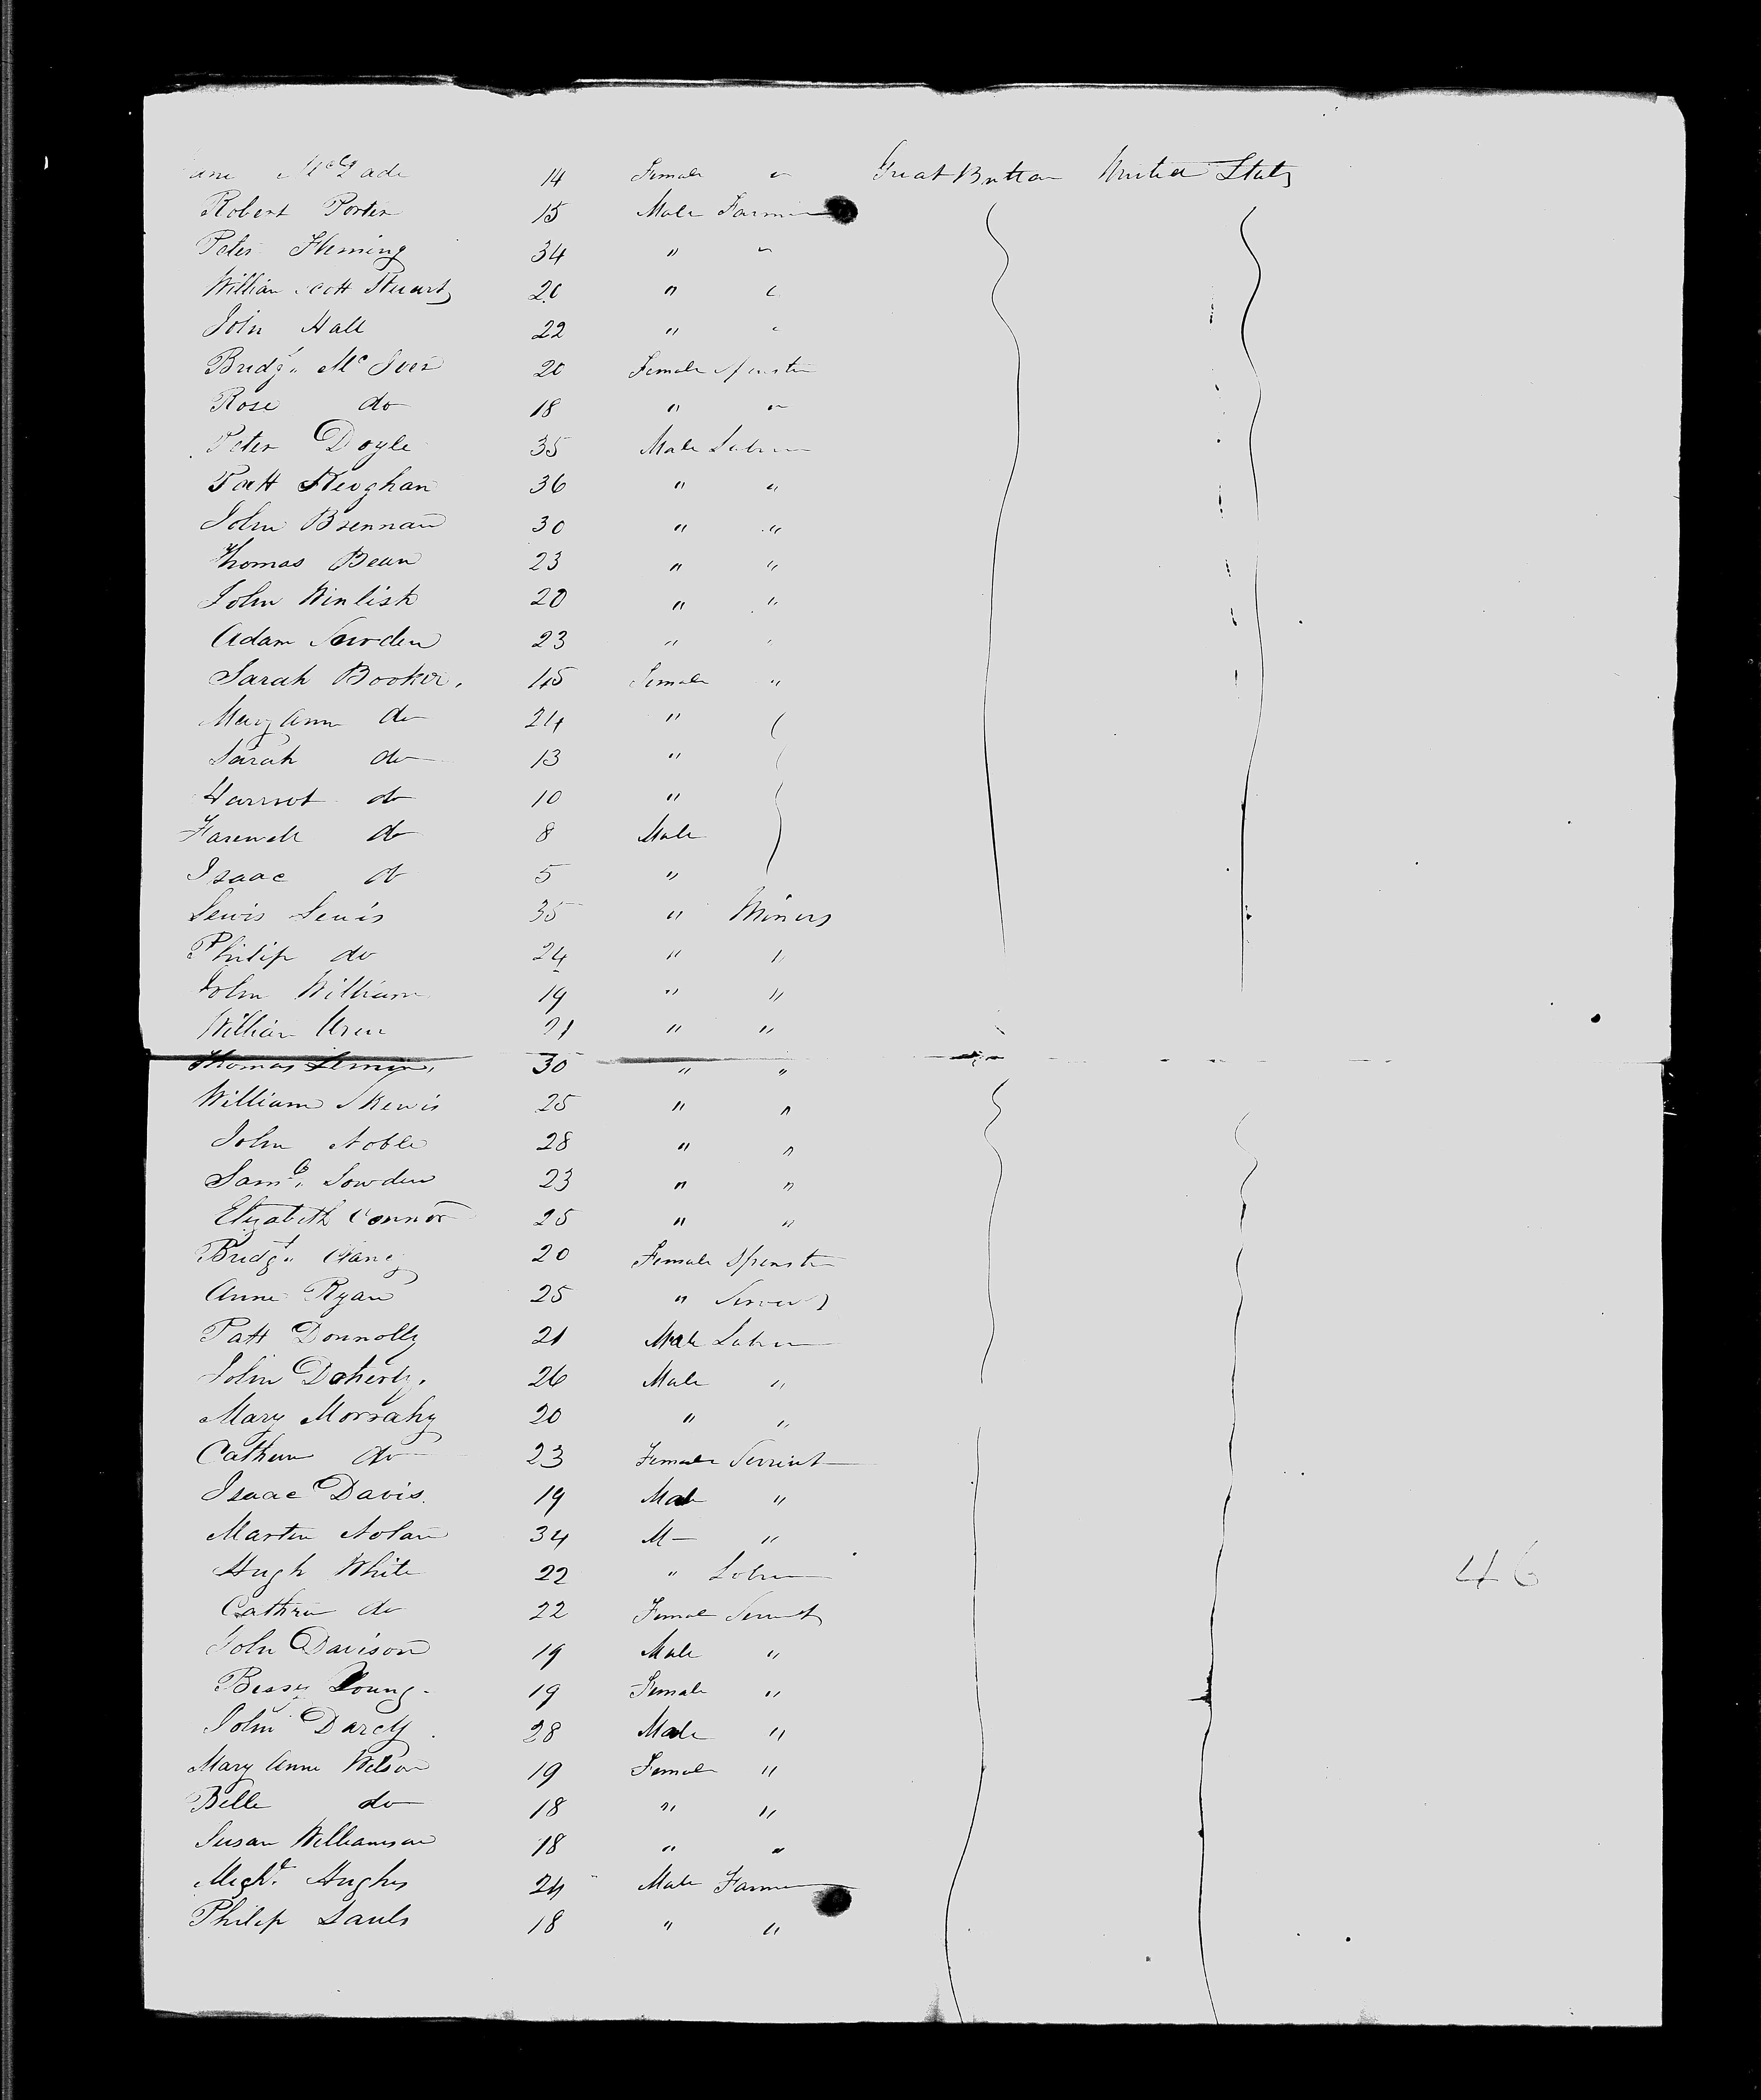 ane McDade 14 Female " Great Britton United States
Robert Porter 15 Male Farmer
Peter Fleming 34 " "
William Scott Stuart 20 " "
John Hall 22 " "
Bridgt McIver 20 Female Spinster
Rose do 18 " "
Peter Doyle 35 Male Labour
Patt Keoghan 36 " "
John Brennan 30 " "
Thomas Bean 23 " "
John Winlish 20 " "
Adam Sowden 23 " "
Sarah Booker 45 Female "
Mary Ann do 24 "
Sarah do 13 "
Harriot do 10 "
do 8 Male
Isaac do 5 "
Lewis Lewis 35 " Miners
Philip do 24 " "
John William 19 " "
William Uren 21 " "
Thomas 30 " "
William Skewis 25 " "
John Noble 28 " "
Saml. Sowden 23 " "
Elizabeth Connor 25 " "
Bridgt 20 Female Spinster
Anne Ryan 25 " Servant
Patt Donnolly 21 Male Labour
John Doherty 26 Male "
Mary Morrahy 20 " "
Cathern do 23 Female Servint
Isaac Davis 19 Male "
Martin Nolan 34 M— "
Hugh White 22 " Labour
Cathrin do 22 Female Servant
John Davison 19 Male "
Bessy Young 19 Female "
John Darcy 28 Male "
Mary Anne Wilson 19 Female "
Belle do 18 " "
Susan Williamson 18 " "
Michl. Hughes 24 Male Farmer
Philip 18 " "
46